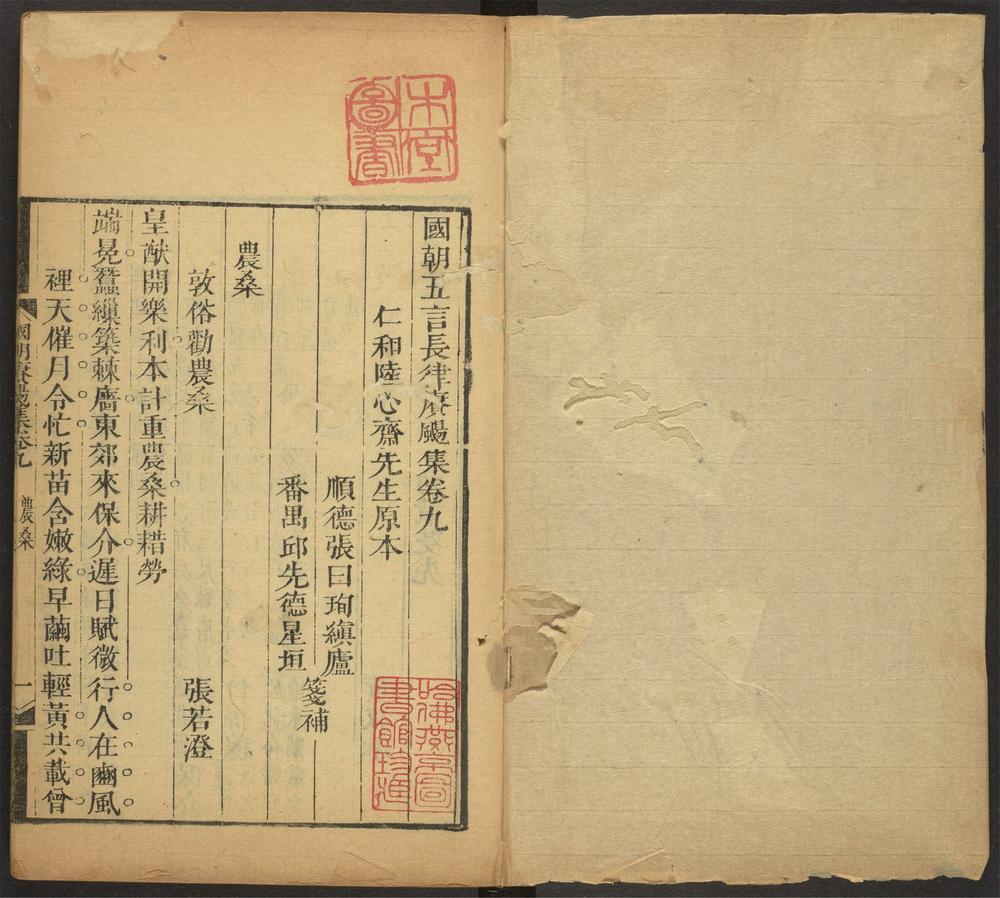 國朝五言長律賡颺集卷九
仁和陸心齋先生原本
順德張日珣縝廬
番禺邱先德星垣
箋補
農桑
敦俗勸農桑
張若澄
皇猷開樂利本計重農桑耕耤勞
端冕蠶繅築棘牆東郊來保介遲日賦微行人在豳風
裡天催月令忙新苗含嫩綠早繭吐輕黃共載曾
國朝賡颺集卷九
農桑
一
圖書
哈佛燕京圖
書館珍藏